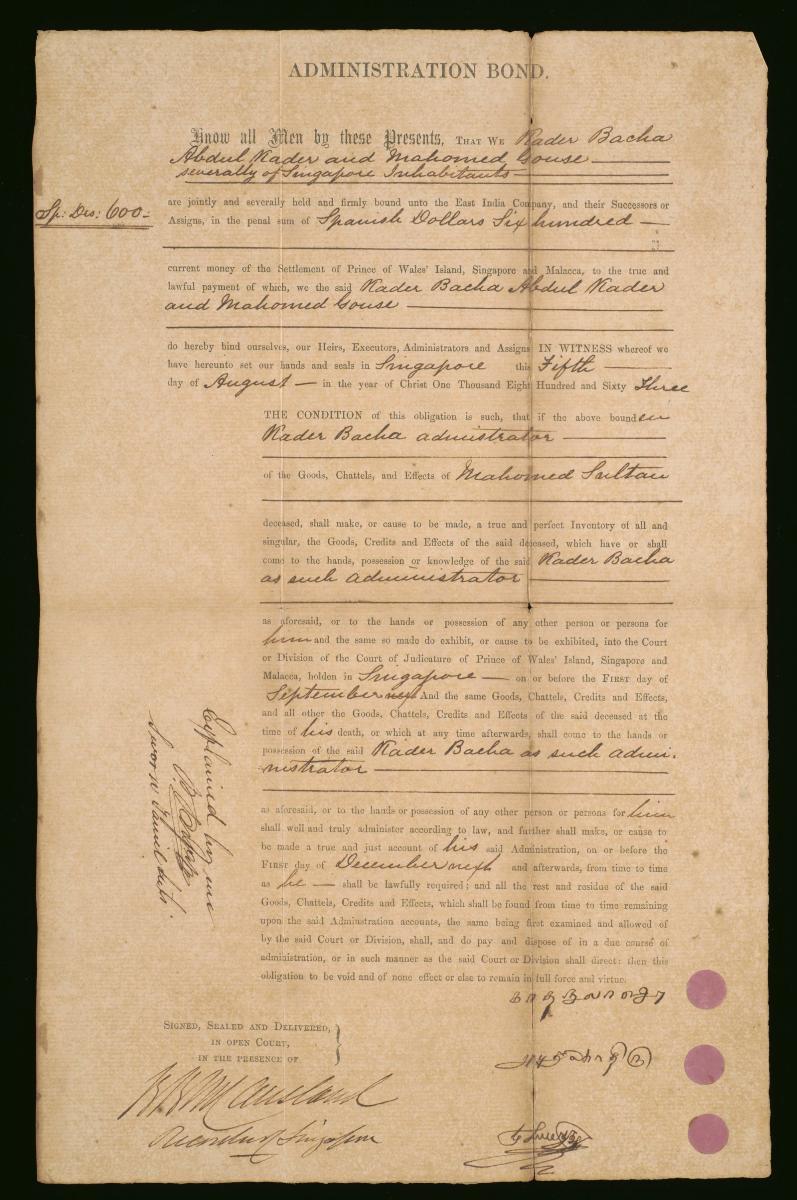 ADMINISTRATION BOND.
Know all Men by these Presents, THAT WE Kader Bacha
Abdul Kader and Mahomed Gouse
severally of Singapore Inhabitants
Sp: Drs: 600
are jointly and severally held and firmly bound unto the East India Company, and their Successors or
Assigns, in the penal sum of Spanish Dollars Six hundred
current money of the Settlement of Prince of Wales' Island, Singapore and Malacca, to the true and
lawful payment of which, we the said Kader Bacha Abdul Kader
and Mahomed Gouse
do hereby bind ourselves, our Heirs, Executors, Administrators and Assigns IN WITNESS whereof we
have hereunto set our hands and seals in Singapore this Fifth
day of August in the year of Christ One Thousand Eight Hundred and Sixty Three
THE CONDITION of this obligation is such, that if the above bounden
Kader Bacha administrator
of the Goods, Chattels, and Effects of Mahomed Sultan
deceased, shall make, or cause to be made, a true and perfect Inventory of all and
singular, the Goods, Credits and Effects of the said deceased, which have or shall
come to the hands, possession or knowledge of the said Kader Bacha
as such administrator
as aforesaid, or to the hands or possession of any other person or persons for
him and the same so made do exhibit, or cause to be exhibited, into the Court
or Division of the Court of Judicature of Prince of Wales' Island, Singapore and
Malacca, holden in Singapore on or before the FIRST day of
September next And the same Goods, Chattels, Credits and Effects,
and all other the Goods, Chattels, Credits and Effects of the said deceased at the
time of his death, or which at any time afterwards, shall come to the hands or
possession of the said Kader Bacha as such admi-
nistrator
as aforesaid, or to the hands or possession of any other person or persons for him
shall well and truly administer according to law, and further shall make, or cause to
be made a true and just account of his said Administration, on or before the
FIRST day of December next and afterwards, from time to time
as he shall be lawfully required; and all the rest and residue of the said
Goods, Chattels, Credits and Effects, which shall be found from time to time remaining
upon the said Adminstration accounts, the same being first examined and allowed of
by the said Court or Division, shall, and do pay and dispose of in a due course of
administration, or in such manner as the said Court or Division shall direct: then this
obligation to be void and of none effect or else to remain in full force and virtue.
Explained by me
Sworn Tamil
SIGNED, SEALED AND DELIVERED,
IN OPEN COURT,
IN THE PRESENCE OF
McCausland
Recorder of Singapore